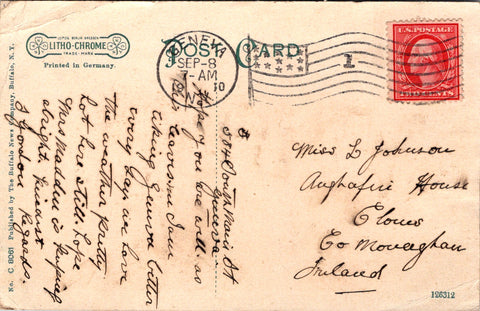 LITHO-CHROME
TRADE-MARK
Printed in Germany.
POST CARD
GENEVA
SEP-8
7-AM
N.Y.
1
U.S. POSTAGE
TWO CENTS
No. C 8061 Published by The Buffalo News Company, Buffalo, N.Y.
South Main St
Geneva
Hope you are well as
this leaves me I am
liking Geneva better
every day we have
the weather pretty
hot here still. Hope
Mrs Madden is keeping
alright. kindest
regards.
Gordon
Miss L Johnson
House
Clones
Co Monaghan
Ireland
126312